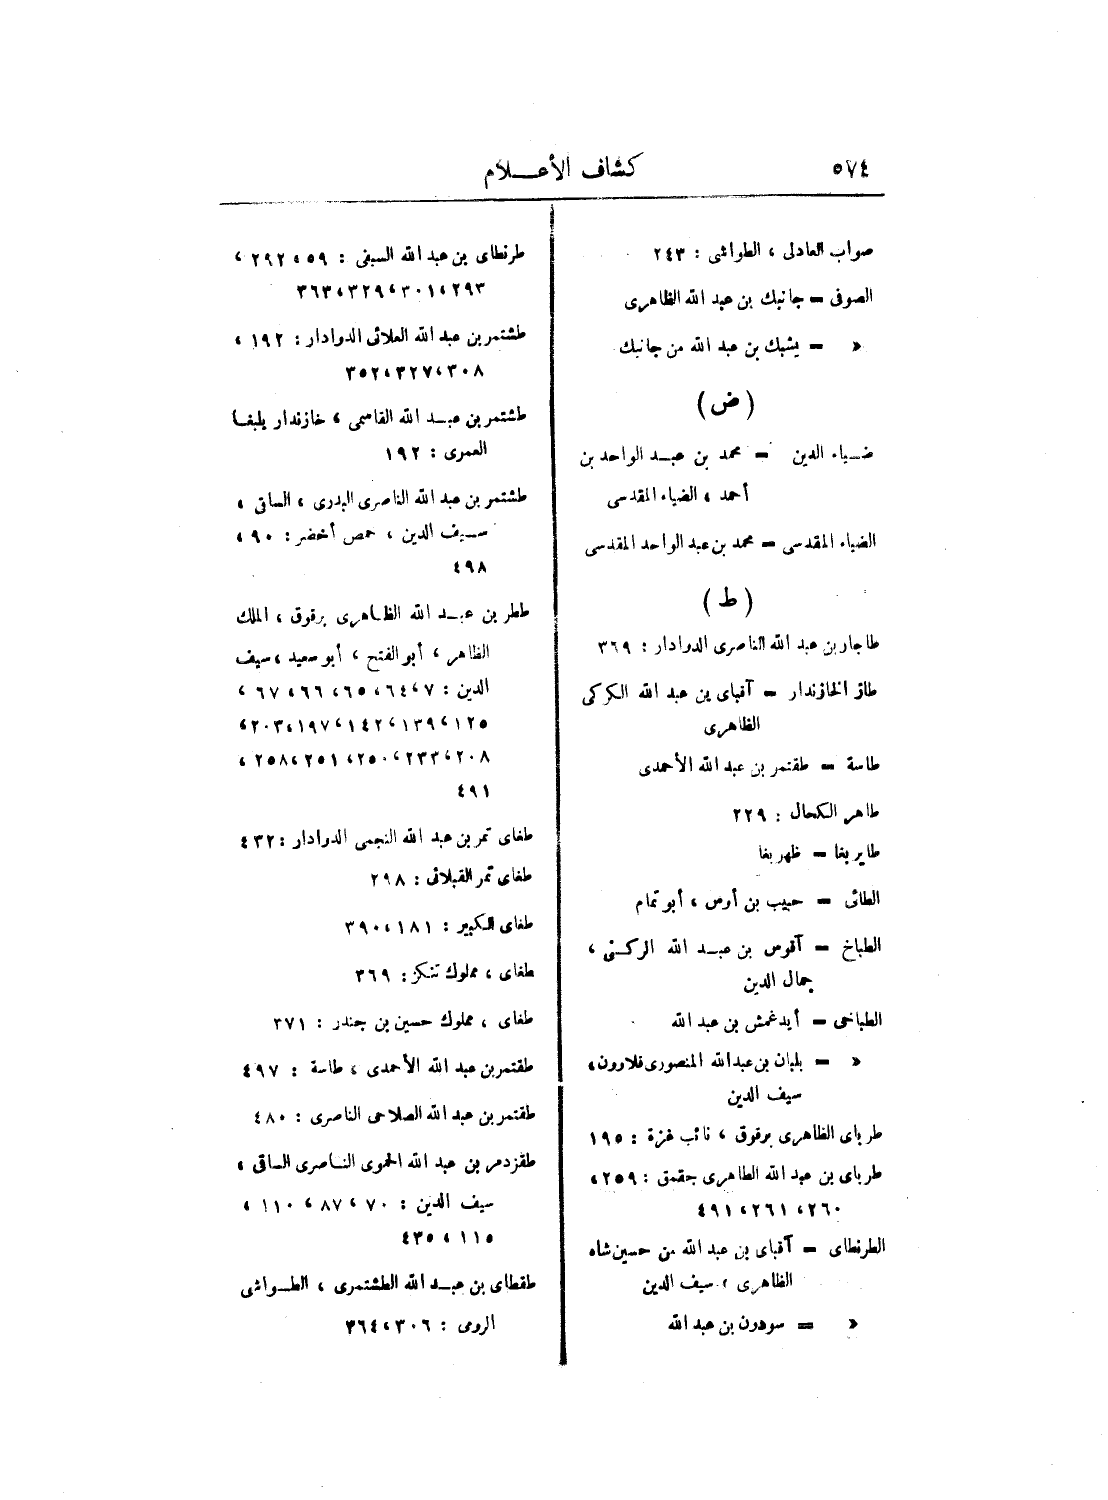 ٥٧٤
كشاف الأعـــلام
صواب العادلى ، الطواشى : ٢٤٣
الصوفى = جانبك بن عبد الله الظاهرى
« = يشبك بن عبد الله من جانبك
( ض )
ضـياء الدين = محمد بن عبـد الواحد بن
أحمد ، الضياء المقدسى
الضياء المقدسى = محمد بن عبد الواحد المقدسى
( ط )
طاجار بن عبد الله الناصرى الدوادار : ٣٦٩
طاز الخازندار = آقباى بن عبد الله الكركى
الظاهرى
طاسة = طقتمر بن عبد الله الأحمدى
طاهر الكحال : ٢٢٩
طاير بغا = ظهر بغا
الطائى = حبيب بن أوس ، أبو تمام
الطباخ = آقوس بن عبـد الله الركـنى ،
جمال الدين
الطباخى = أيدغمش بن عبد الله
« = بلبان بن عبد الله المنصورى قلاوون،
سيف الدين
طرباى الظاهرى برقوق ، نائب غزة : ١٩٥
طرباى بن عبد الله الظاهرى جقمق : ٢٥٩،
٢٦٠، ٢٦١، ٤٩١
الطرنطاى = آقباى بن عبد الله من حسين شاه
الظاهرى ، سيف الدين
« = سودون بن عبد الله
طرنطاى بن عبد الله السيفى : ٥٩، ٢٩٢،
٢٩٣، ٣٠١، ٣٢٩، ٣٦٣
طشتمر بن عبد الله العلائى الدوادار : ١٩٢،
٣٠٨، ٣٢٧، ٣٥٢
طشتمر بن عبـد الله القاسمى ، خازندار يلبغـا
العمرى : ١٩٢
طشتمر بن عبد الله الناصرى البدرى ، الساقى ،
سـيف الدين ، حمص أخضر : ٩٠،
٤٩٨
ططر بن عبـد الله الظـاهرى برقوق ، الملك
الظاهر ، أبو الفتح ، أبو سعيد ، سيف
الدين : ٧، ٦٤، ٦٥، ٦٦، ٦٧،
١٢٥، ١٣٩، ١٤٢، ١٩٧، ٢٠٣،
٢٠٨، ٢٣٣، ٢٥٠، ٢٥١، ٢٥٨،
٤٩١
طغاى تمر بن عبد الله النجمى الدوادار : ٤٣٢
طغاى تمر القبلائى : ٢٩٨
طغاى الكبير : ١٨١، ٣٩٠
طغاى ، مملوك تنكز : ٣٦٩
طغاى ، مملوك حسين بن جندر : ٣٧١
طقتمر بن عبد الله الأحمدى ، طاسة : ٤٩٧
طقتمر بن عبد الله الصلاحى الناصرى : ٤٨٠
طقزدمر بن عبد الله الحموى النـاصرى الساقى ،
سيف الدين : ٧٠، ٨٧، ١١٠،
١١٥، ٤٣٥
طقطاى بن عبـد الله الطشتمرى ، الطـواشى
الرومى : ٣٠٦، ٣٦٤